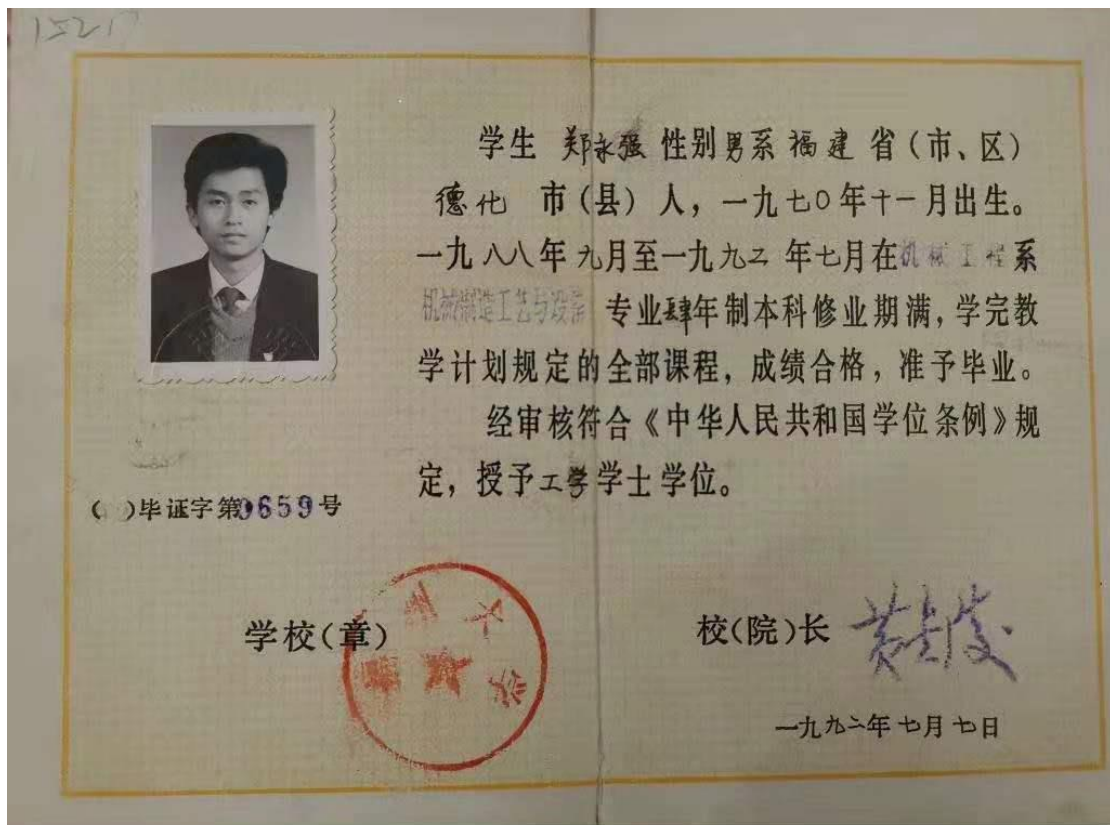 152
学生 郑永强 性别男系福建省(市、区)
德化 市(县)人,一九七〇年十一月出生。
一九八八年九月至一九九二年七月在机械工程系
机械制造工艺与设备 专业肆年制本科修业期满,学完教
学计划规定的全部课程,成绩合格,准予毕业。
经审核符合《中华人民共和国学位条例》规
定,授予工学学士学位。
( )毕证字第0659号
学校(章)
大学
校(院)长
一九九二年七月七日